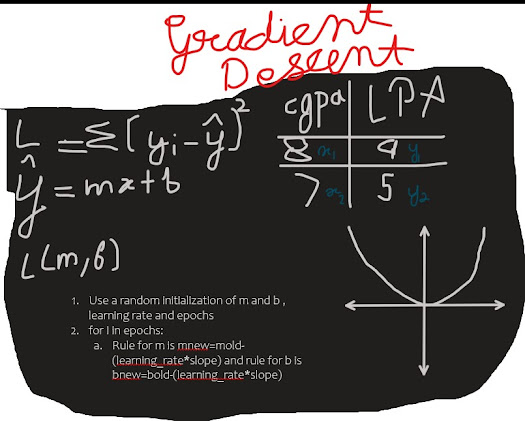 Gradient
Descent
L = Σ[yi - ŷ)²
ŷ = mx+b
L(m,b)
cgpa LPA
8 x₁ 9 y
7 x₂ 5 y₂
1. Use a random initialization of m and b ,
learning rate and epochs
2. for I in epochs:
a. Rule for m is mnew=mold-
(learning_rate*slope) and rule for b is
bnew=bold-(learning_rate*slope)